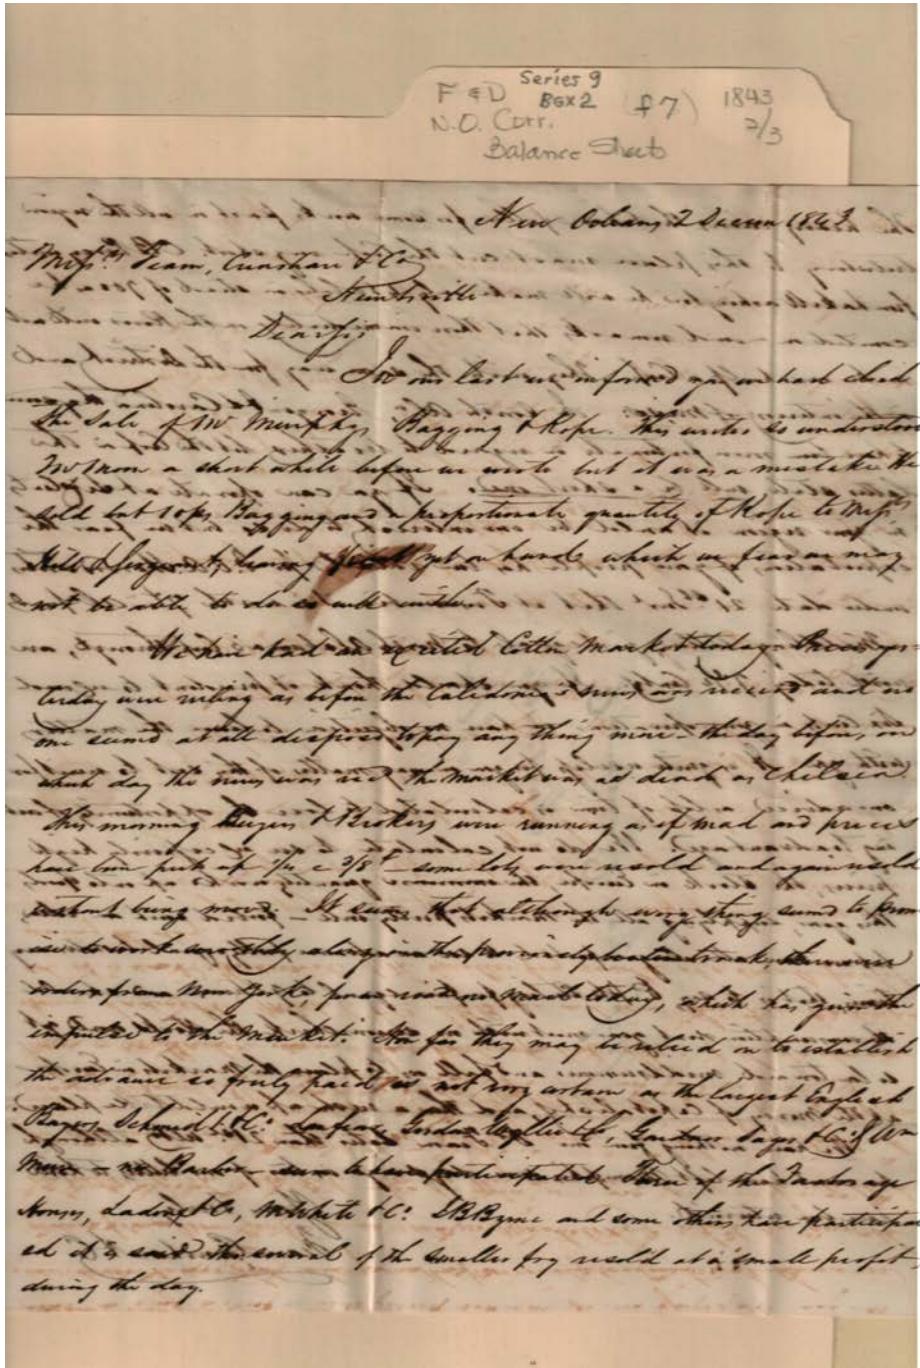 Series 9
F & D Box 2 (f 7) 1843
N.O. Corr. 2/3
Balance Sheets
New Orleans 2 Decem 1843
Messrs Fearn, & Co
Dear Sirs
In our last we informed you we had closed
the Sale of Mr Murphys Bagging & Rope. This writer so understood
Mr a short while before we wrote but it was a mistake He
sold but 10 ps Bagging and a proportionate quantity of Rope to Messrs
Hill & leaving yet on hand which we fear we may
not be able to do so well with
We have had an excited Cotton Market today. Prices yes-
terday were ruling as before the Caledonia's news was received and no
one seemed at all disposed to pay any thing more – the day before, on
which day the news was recd the market was as dead as Chelsea.
This morning Buyers & Brokers were running as if mad and prices
have been put up 1/4 c 3/8 – some lots were resold and again resold
without being moved. It seems that although every thing seemed to prom
ise to work smoothly along in the previously beaten track, there were
orders from New York, today, which has given the
impulse to the market. How far they may be relied on to establish
the advance so freely paid is not very certain as the largest English
Buyers, Schmidt & Co. Gordon Wyllie & Co, & Co. & Wm
– nor Barlow – seem to have participated. Three of the
Houses, & Co, M White & Co. and some others have participat
ed it is said. the several of the smaller fry resold at a small profit
during the day.